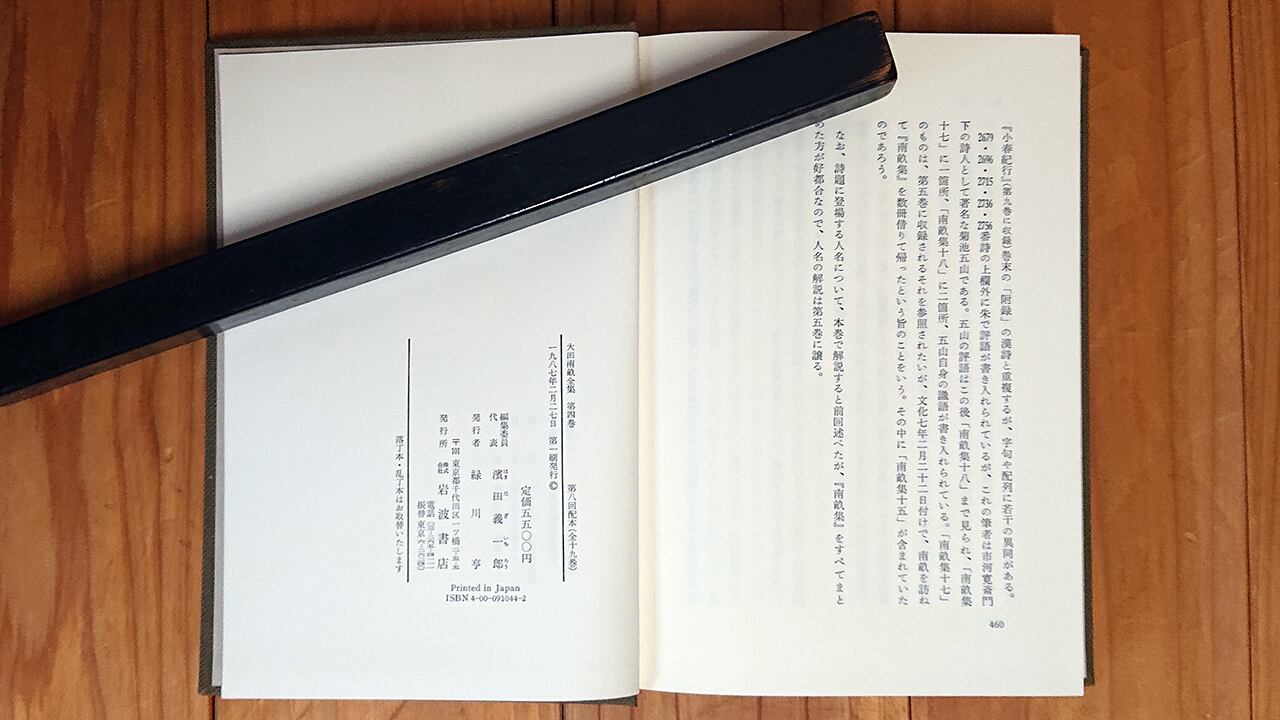 『小春紀行』(第九巻に収録)巻末の「附録」の漢詩と重複するが、字句や配列に若干の異同がある。
2679・2696・2715・2736・2756番詩の上欄外に朱で評語が書き入れられているが、これの筆者は市河寛斎門
下の詩人として著名な菊池五山である。五山の評語はこの後「南畝集十八」まで見られ、「南畝集
十七」に一箇所、「南畝集十八」に二箇所、五山自身の識語が書き入れられている。「南畝集十七」
のものは、第五巻に収録されるそれを参照されたいが、文化七年二月二十二日付けで、南畝を訪ね
て『南畝集』を数冊借りて帰ったという旨のことをいう。その中に「南畝集十五」が含まれていた
のであろう。
なお、詩題に登場する人名について、本巻で解説すると前回述べたが、『南畝集』をすべてまと
のた方が好都合なので、人名の解説は第五巻に譲る。
460
大田南畝全集 第四巻 第八回配本(全十九巻)
一九八七年二月二七日 第一刷発行©
定価五五〇〇円
編集委員代表 濱田義一郎
発行者 緑川亨
〒101 東京都千代田区一ツ橋二ー五ー五
発行所 株式会社 岩波書店
電話
振替 東京
落丁本・乱丁本はお取替いたします
Printed in Japan
ISBN 4-00-091044-2